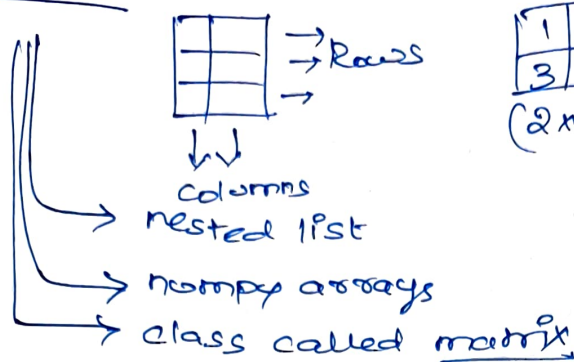 Rows
1
3
(2x
columns
nested list
numpy arrays
class called matrix